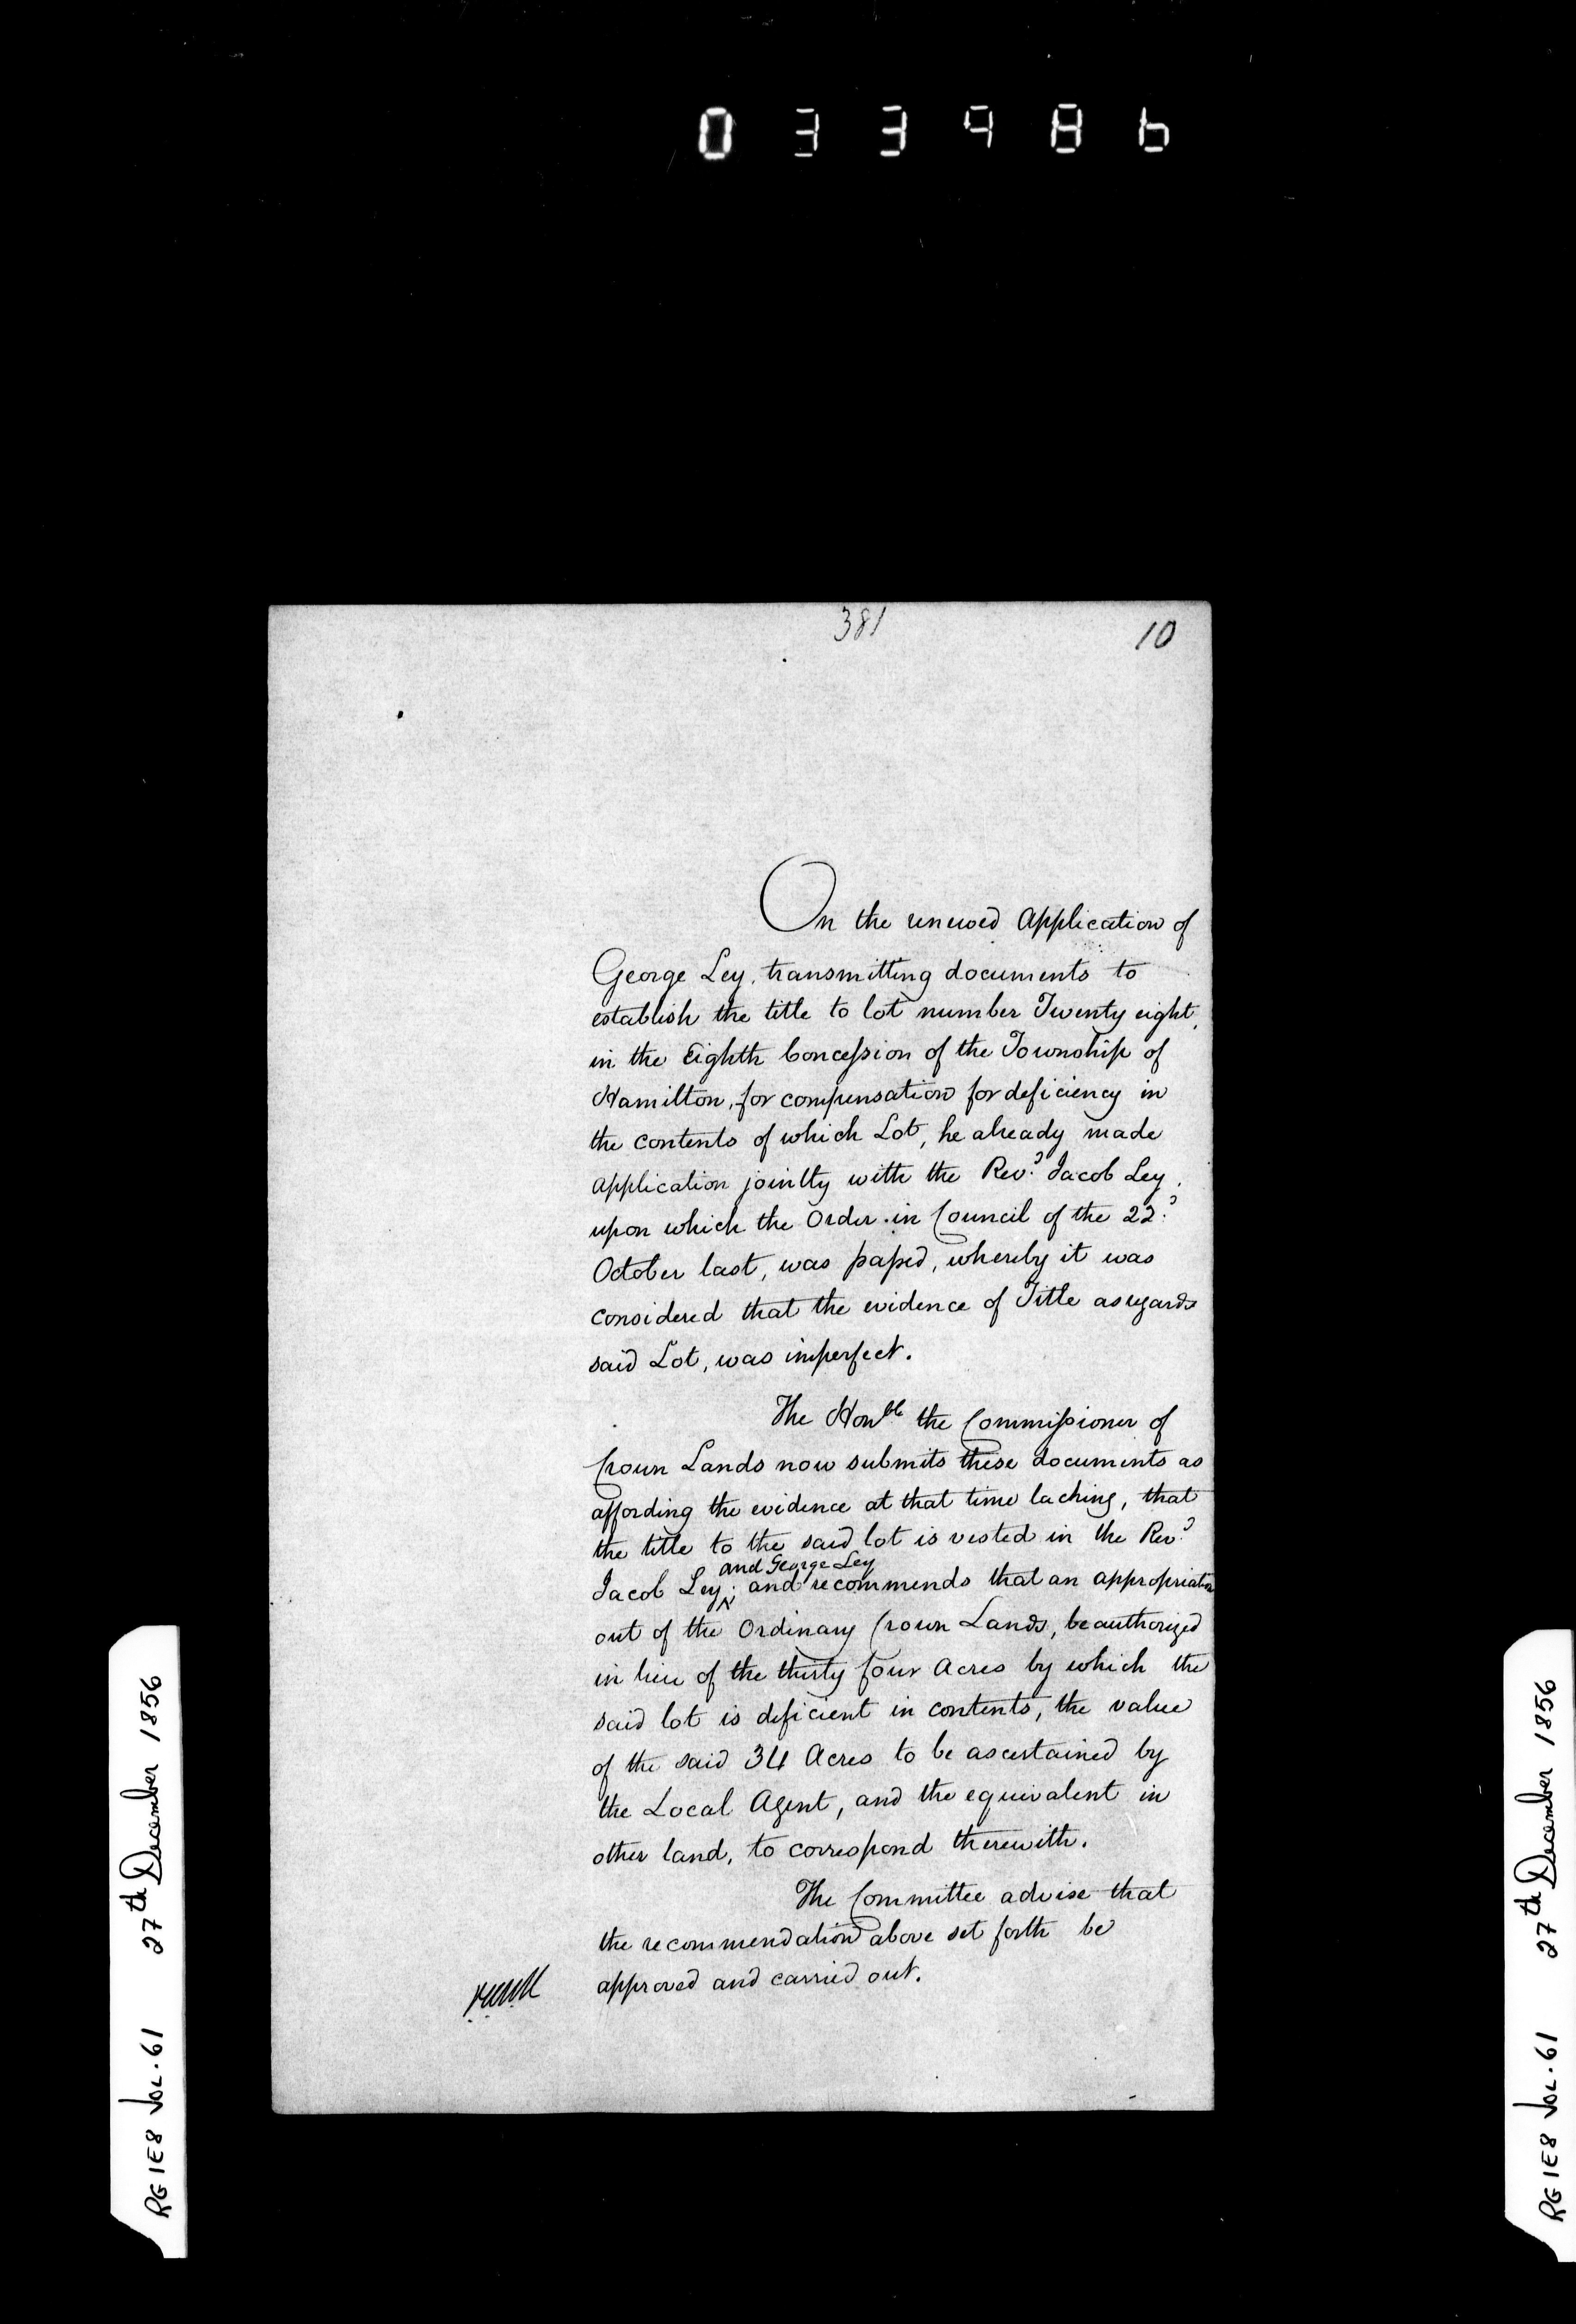 033986
381
10
On the renewed Application of
George Ley, transmitting documents to
establish the title to lot number Twenty eight,
in the Eighth Concession of the Township of
Hamilton, for compensation for deficiency in
the contents of which Lot, he already made
application jointly with the Revd. Jacob Ley,
upon which the Order in Council of the 22d.
October last, was passed, whereby it was
considered that the evidence of Title as regards
said Lot, was imperfect.
The Honble the Commissioner of
Crown Lands now submits these documents as
affording the evidence at that time lacking, that
the title to the said lot is vested in the Revd.
and George Ley
Jacob Ley; and recommends that an appropriation
out of the Ordinary Crown Lands, be authorized
in lieu of the thirty four Acres by which the
said lot is deficient in contents, the value
of the said 34 Acres to be ascertained by
the Local Agent, and the equivalent in
other land, to correspond therewith.
The Committee advise that
the recommendation above set forth be
approved and carried out.
RG 1E8 Vol. 61 27th December 1856
RG 1E8 Vol. 61 27th December 1856